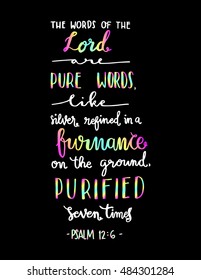 THE WORDS OF THE
Lord
are
PURE WORDS,
like
silver, refined in a
furnance
on the ground,
PURIFIED
seven times
- PSALM 12:6 -
shutterstock.com · 484301284